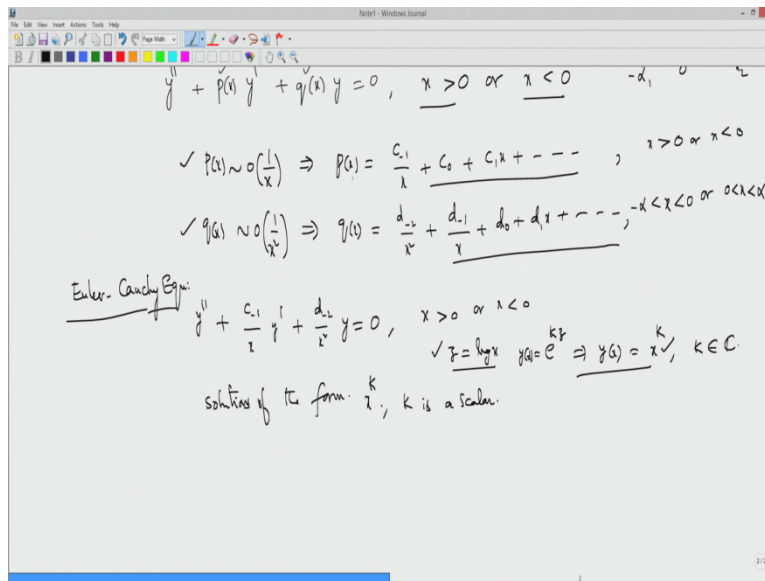 Note1 - Windows Journal
File Edit View Insert Actions Tools Help
Page Width
B I
y'' + p(x) y' + q(x) y = 0, x > 0 or x < 0 -α₁ 0 α₂
✓ p(x) ~ O(1/x) ⇒ p(x) = c₋₁/x + c₀ + c₁x + - - - , x > 0 or x < 0
✓ q(x) ~ O(1/x²) ⇒ q(x) = d₋₂/x² + d₋₁/x + d₀ + d₁x + - - - , -α < x < 0 or 0 < x < α
Euler-Cauchy Eqn:
y'' + c₋₁/x y' + d₋₂/x² y = 0, x > 0 or x < 0
✓ z = log x y(x) = e^{kz} ⇒ y(x) = x^k ✓, k ∈ ℂ.
solutions of the form x^k, k is a scalar.
2/2
2